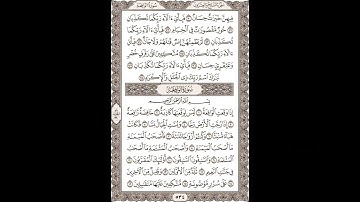 فِيهِنَّ خَيْرَٰتٌ حِسَانٌ ۝٧٠ فَبِأَيِّ ءَالَآءِ رَبِّكُمَا تُكَذِّبَانِ ۝٧١
حُورٌ مَّقْصُورَٰتٌ فِى ٱلْخِيَامِ ۝٧٢ فَبِأَيِّ ءَالَآءِ رَبِّكُمَا
تُكَذِّبَانِ ۝٧٣ لَمْ يَطْمِثْهُنَّ إِنسٌ قَبْلَهُمْ وَلَا جَآنٌّ ۝٧٤ فَبِأَيِّ
ءَالَآءِ رَبِّكُمَا تُكَذِّبَانِ ۝٧٥ مُتَّكِـِٔينَ عَلَىٰ رَفْرَفٍ خُضْرٍ
وَعَبْقَرِىٍّ حِسَانٍ ۝٧٦ فَبِأَيِّ ءَالَآءِ رَبِّكُمَا تُكَذِّبَانِ ۝٧٧
تَبَٰرَكَ ٱسْمُ رَبِّكَ ذِى ٱلْجَلَٰلِ وَٱلْإِكْرَامِ ۝٧٨
سُورَةُ الوَاقِعَةِ
بِسْمِ ٱللَّهِ ٱلرَّحْمَٰنِ ٱلرَّحِيمِ
إِذَا وَقَعَتِ ٱلْوَاقِعَةُ ۝١ لَيْسَ لِوَقْعَتِهَا كَاذِبَةٌ ۝٢ خَافِضَةٌ رَّافِعَةٌ ۝٣
إِذَا رُجَّتِ ٱلْأَرْضُ رَجًّا ۝٤ وَبُسَّتِ ٱلْجِبَالُ بَسًّا ۝٥ فَكَانَتْ
هَبَآءً مُّنۢبَثًّا ۝٦ وَكُنتُمْ أَزْوَٰجًا ثَلَٰثَةً ۝٧ فَأَصْحَٰبُ ٱلْمَيْمَنَةِ
مَآ أَصْحَٰبُ ٱلْمَيْمَنَةِ ۝٨ وَأَصْحَٰبُ ٱلْمَشْـَٔمَةِ مَآ أَصْحَٰبُ
ٱلْمَشْـَٔمَةِ ۝٩ وَٱلسَّٰبِقُونَ ٱلسَّٰبِقُونَ ۝١٠ أُو۟لَٰٓئِكَ ٱلْمُقَرَّبُونَ ۝١١
فِى جَنَّٰتِ ٱلنَّعِيمِ ۝١٢ ثُلَّةٌ مِّنَ ٱلْأَوَّلِينَ ۝١٣ وَقَلِيلٌ مِّنَ ٱلْءَاخِرِينَ ۝١٤
عَلَىٰ سُرُرٍ مَّوْضُونَةٍ ۝١٥ مُّتَّكِـِٔينَ عَلَيْهَا مُتَقَٰبِلِينَ ۝١٦
٥٣٤